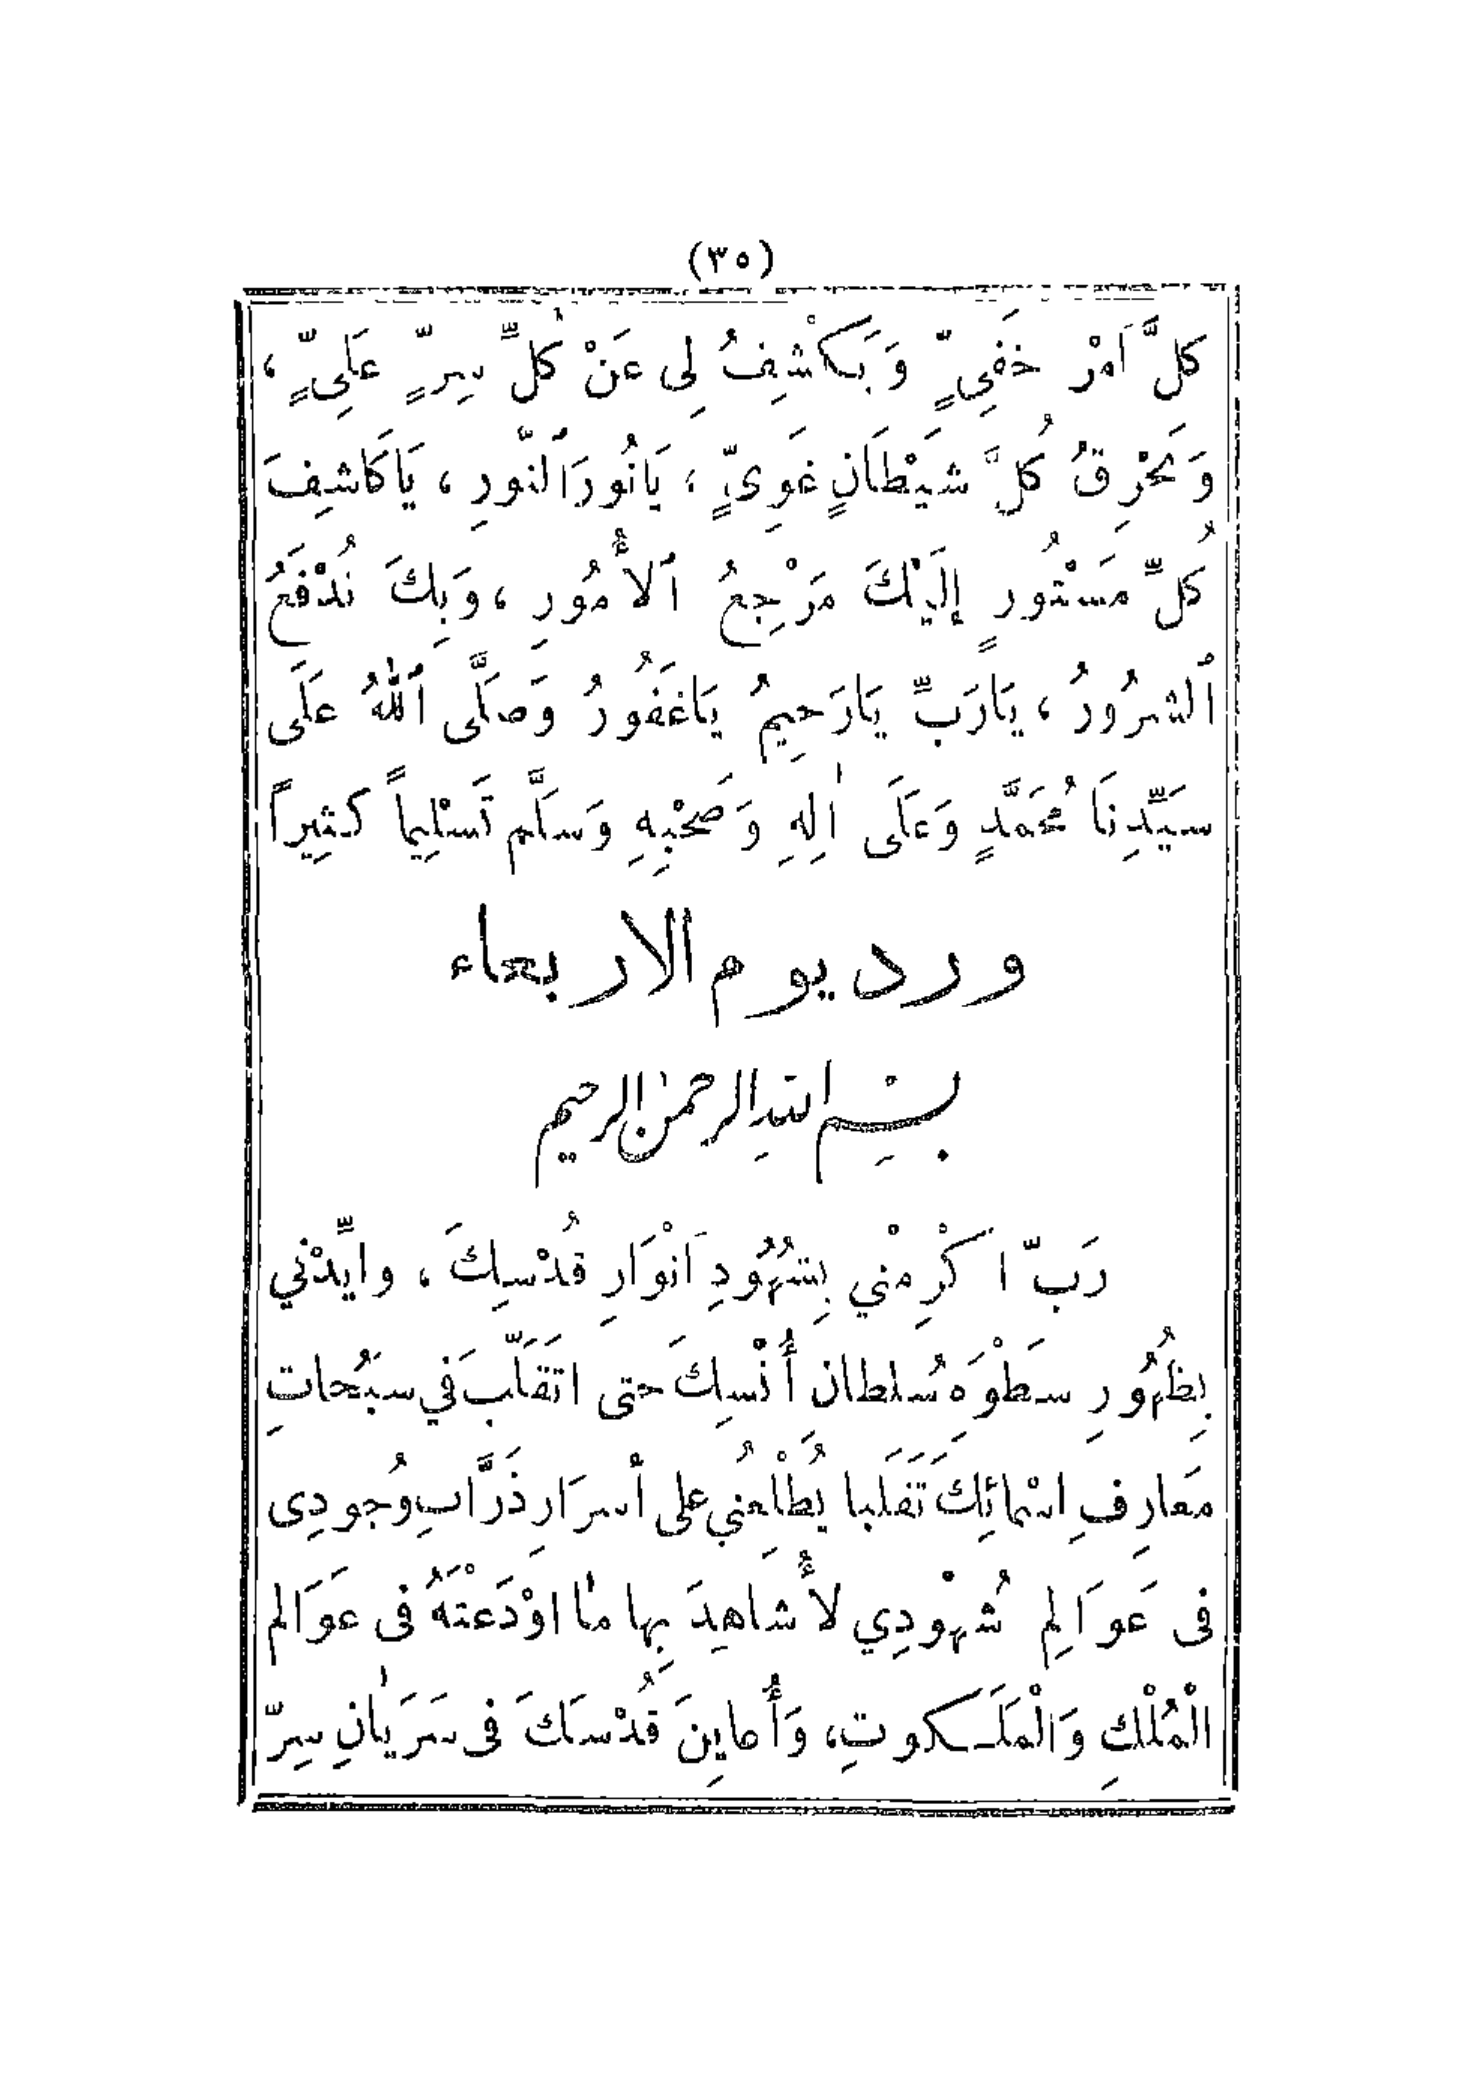 (٣٥)
كلَّ اَمْرٍ خَفِيٍّ وَيَكْشِفُ لِى عَنْ كُلِّ سِرٍّ عَلِىٍّ ،
وَتَحْرِقُ كُلَّ شَيْطَانٍ غَوِىٍّ ، يَانُورَ ٱلنّورِ ، يَاكَاشِفَ
كُلِّ مَسْتُورٍ إِلَيْكَ مَرْجِعُ ٱلأُمُورِ ، وَبِكَ نُدْفَعُ
ٱلشرُورُ ، يَارَبِّ يَارَحِيمُ يَاغَفُورُ وَصَلَّى ٱللهُ عَلَى
سَيِّدِنَا مُحَمَّدٍ وَعَلَى اٰلِهِ وَصَحْبِهِ وَسَلَّم تَسْلِيماً كثِيراً
ورد يوم الاربعاء
بسْمِ الله الرحمٰن الرحيم
رَبّ اكْرِمْني بِشهُودِ اَنْوَارِ قُدْسِكَ ، وايِّدْني
بِظهُورِ سَطْوَهِ سُلطان أُنْسِكَ حتى اتَقَلّبَ في سبُحاتِ
مَعارِفِ اسْمائِكَ تَقَلبا يُطْلِعُني على أسرَارِ ذَرَّاتِ وُجودِى
فى عَوَالِم شُهْودِي لأُشاهِدَ بِها مٰا اوْدَعْتَهُ فى عَوَالم
الْمُلْكِ وَالْمَلَكوتِ، وَأُعايِنَ قُدْسَكَ فى سَرَيٰانِ سِرّ